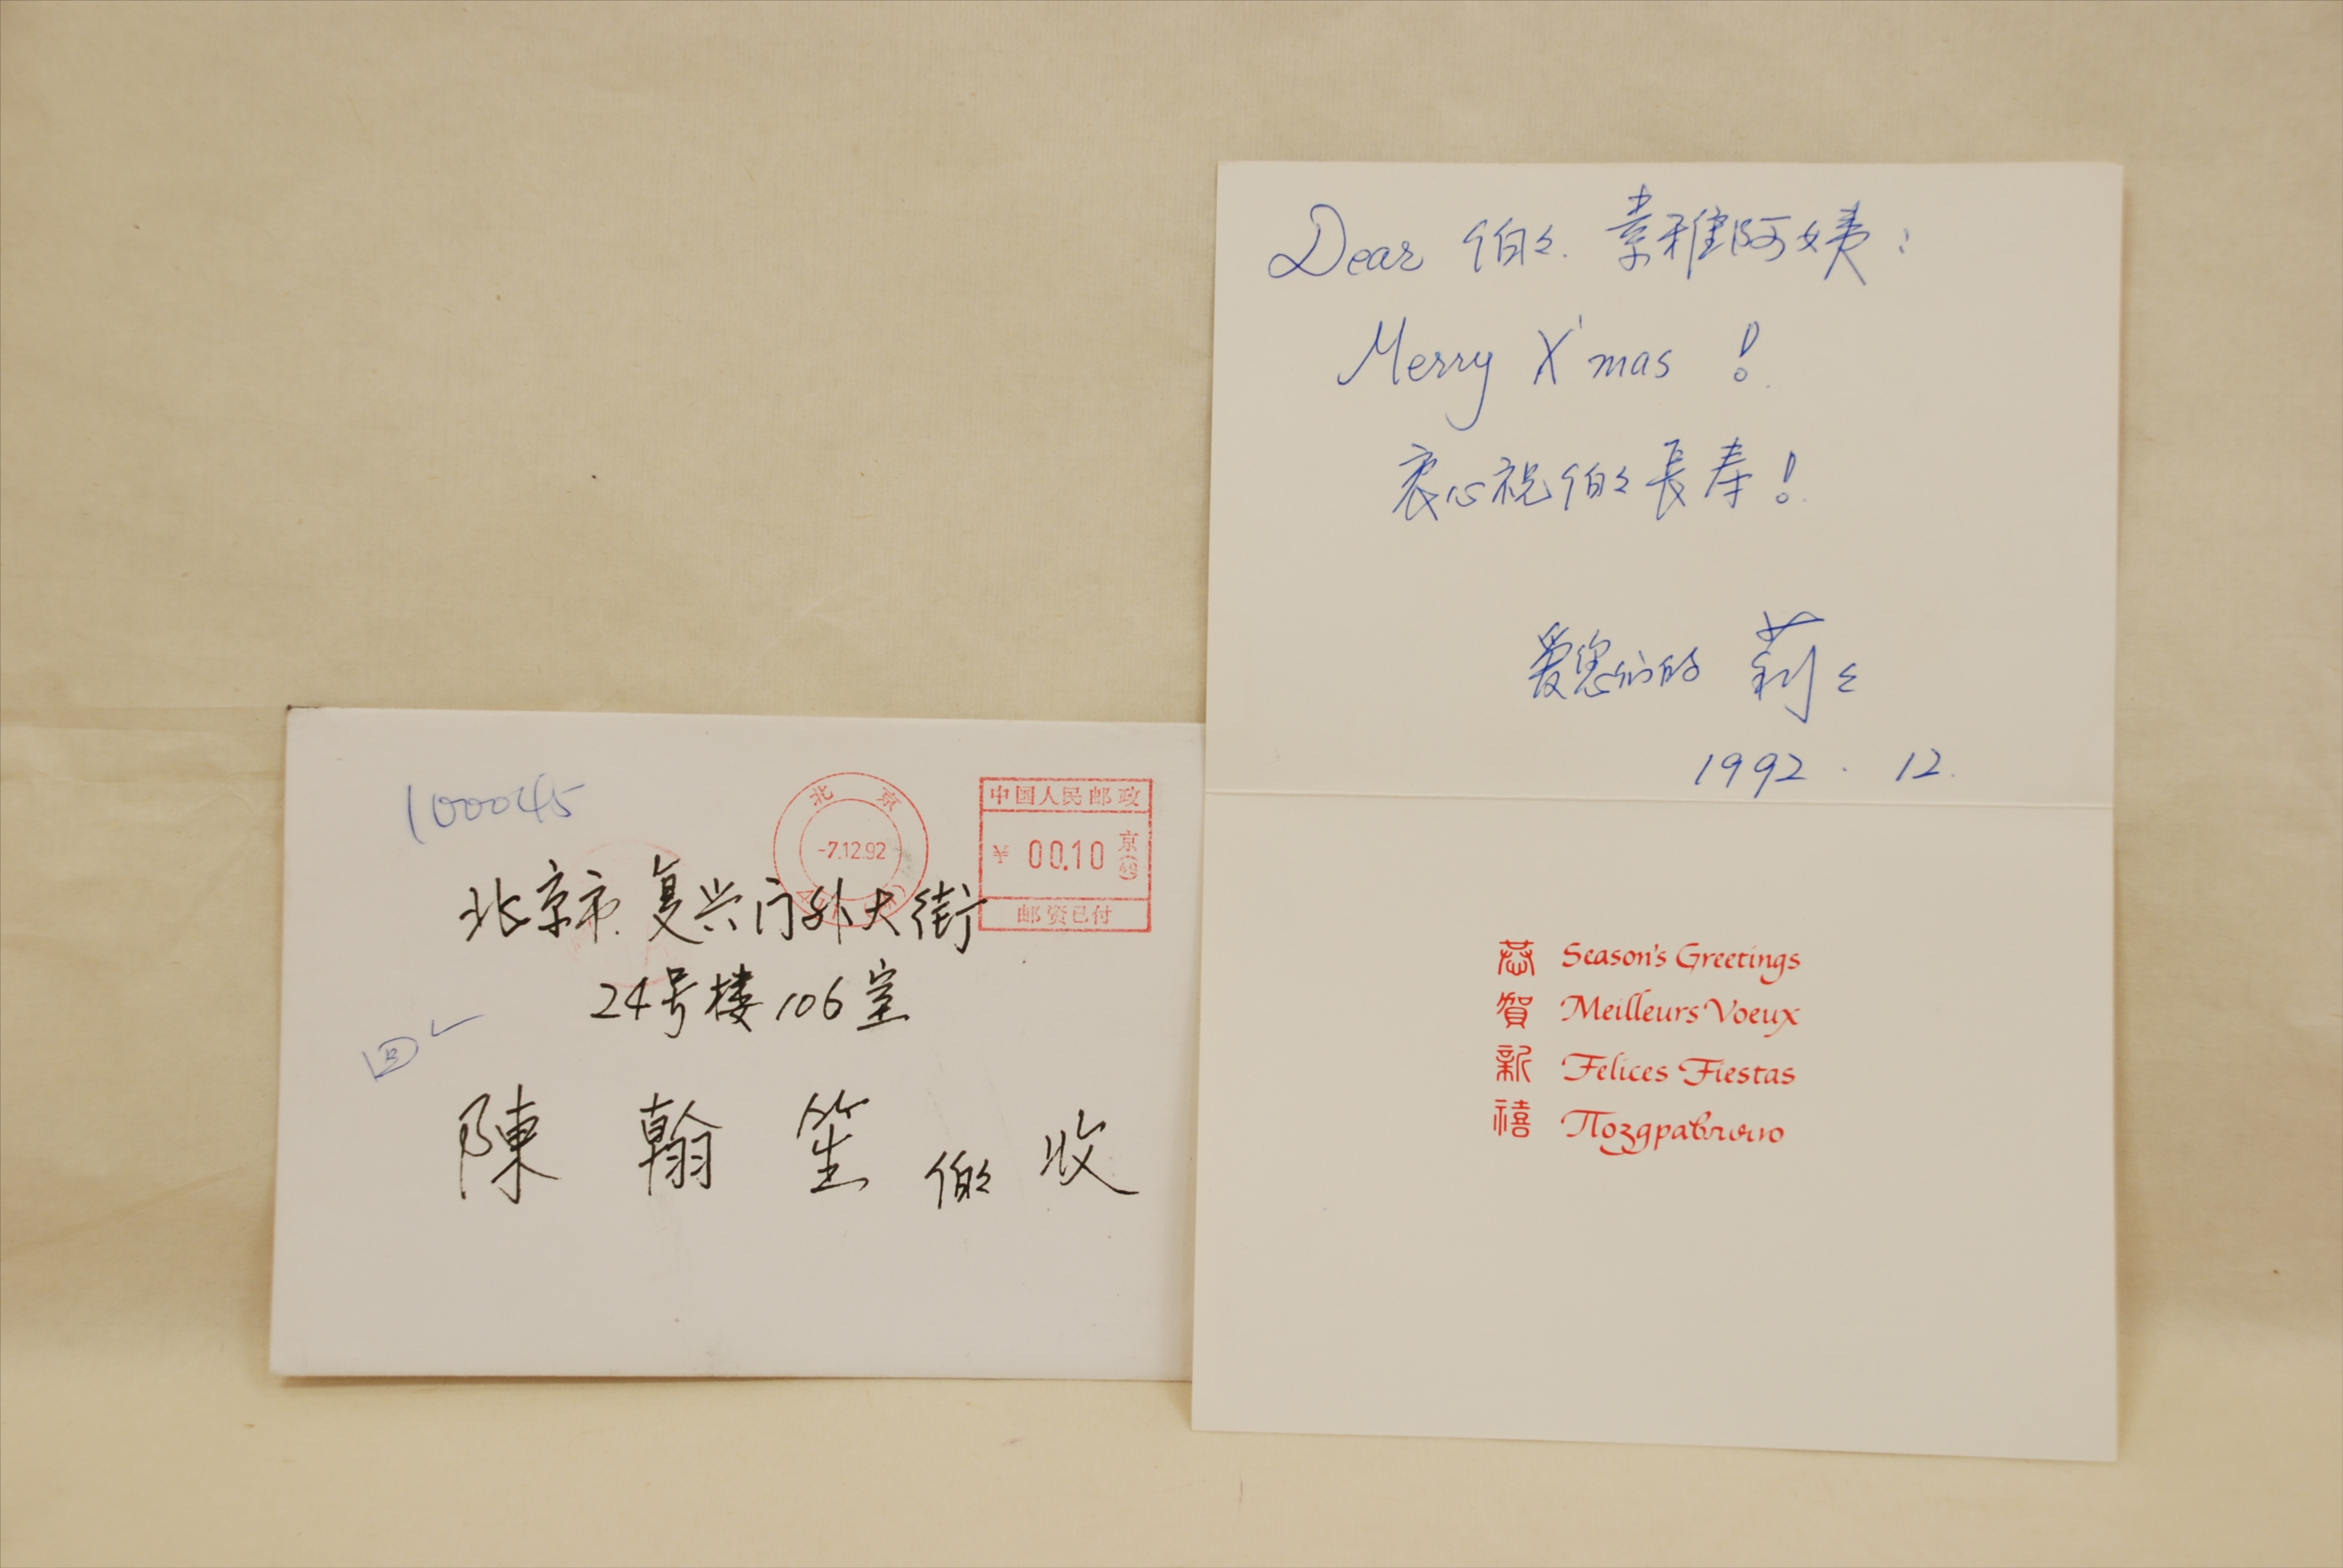 100045
北京
-7.12.92
中国人民邮政
¥ 00.10 京(49)
邮资已付
北京市.复兴门外大街
24号楼106室
回
陳翰笙伯々收
Dear 伯々. 素雅阿姨:
Merry X'mas!
衷心祝伯々長寿!
爱您们的 莉々
1992.12.
恭 Season's Greetings
賀 Meilleurs Voeux
新 Felices Fiestas
禧 Поздравляю